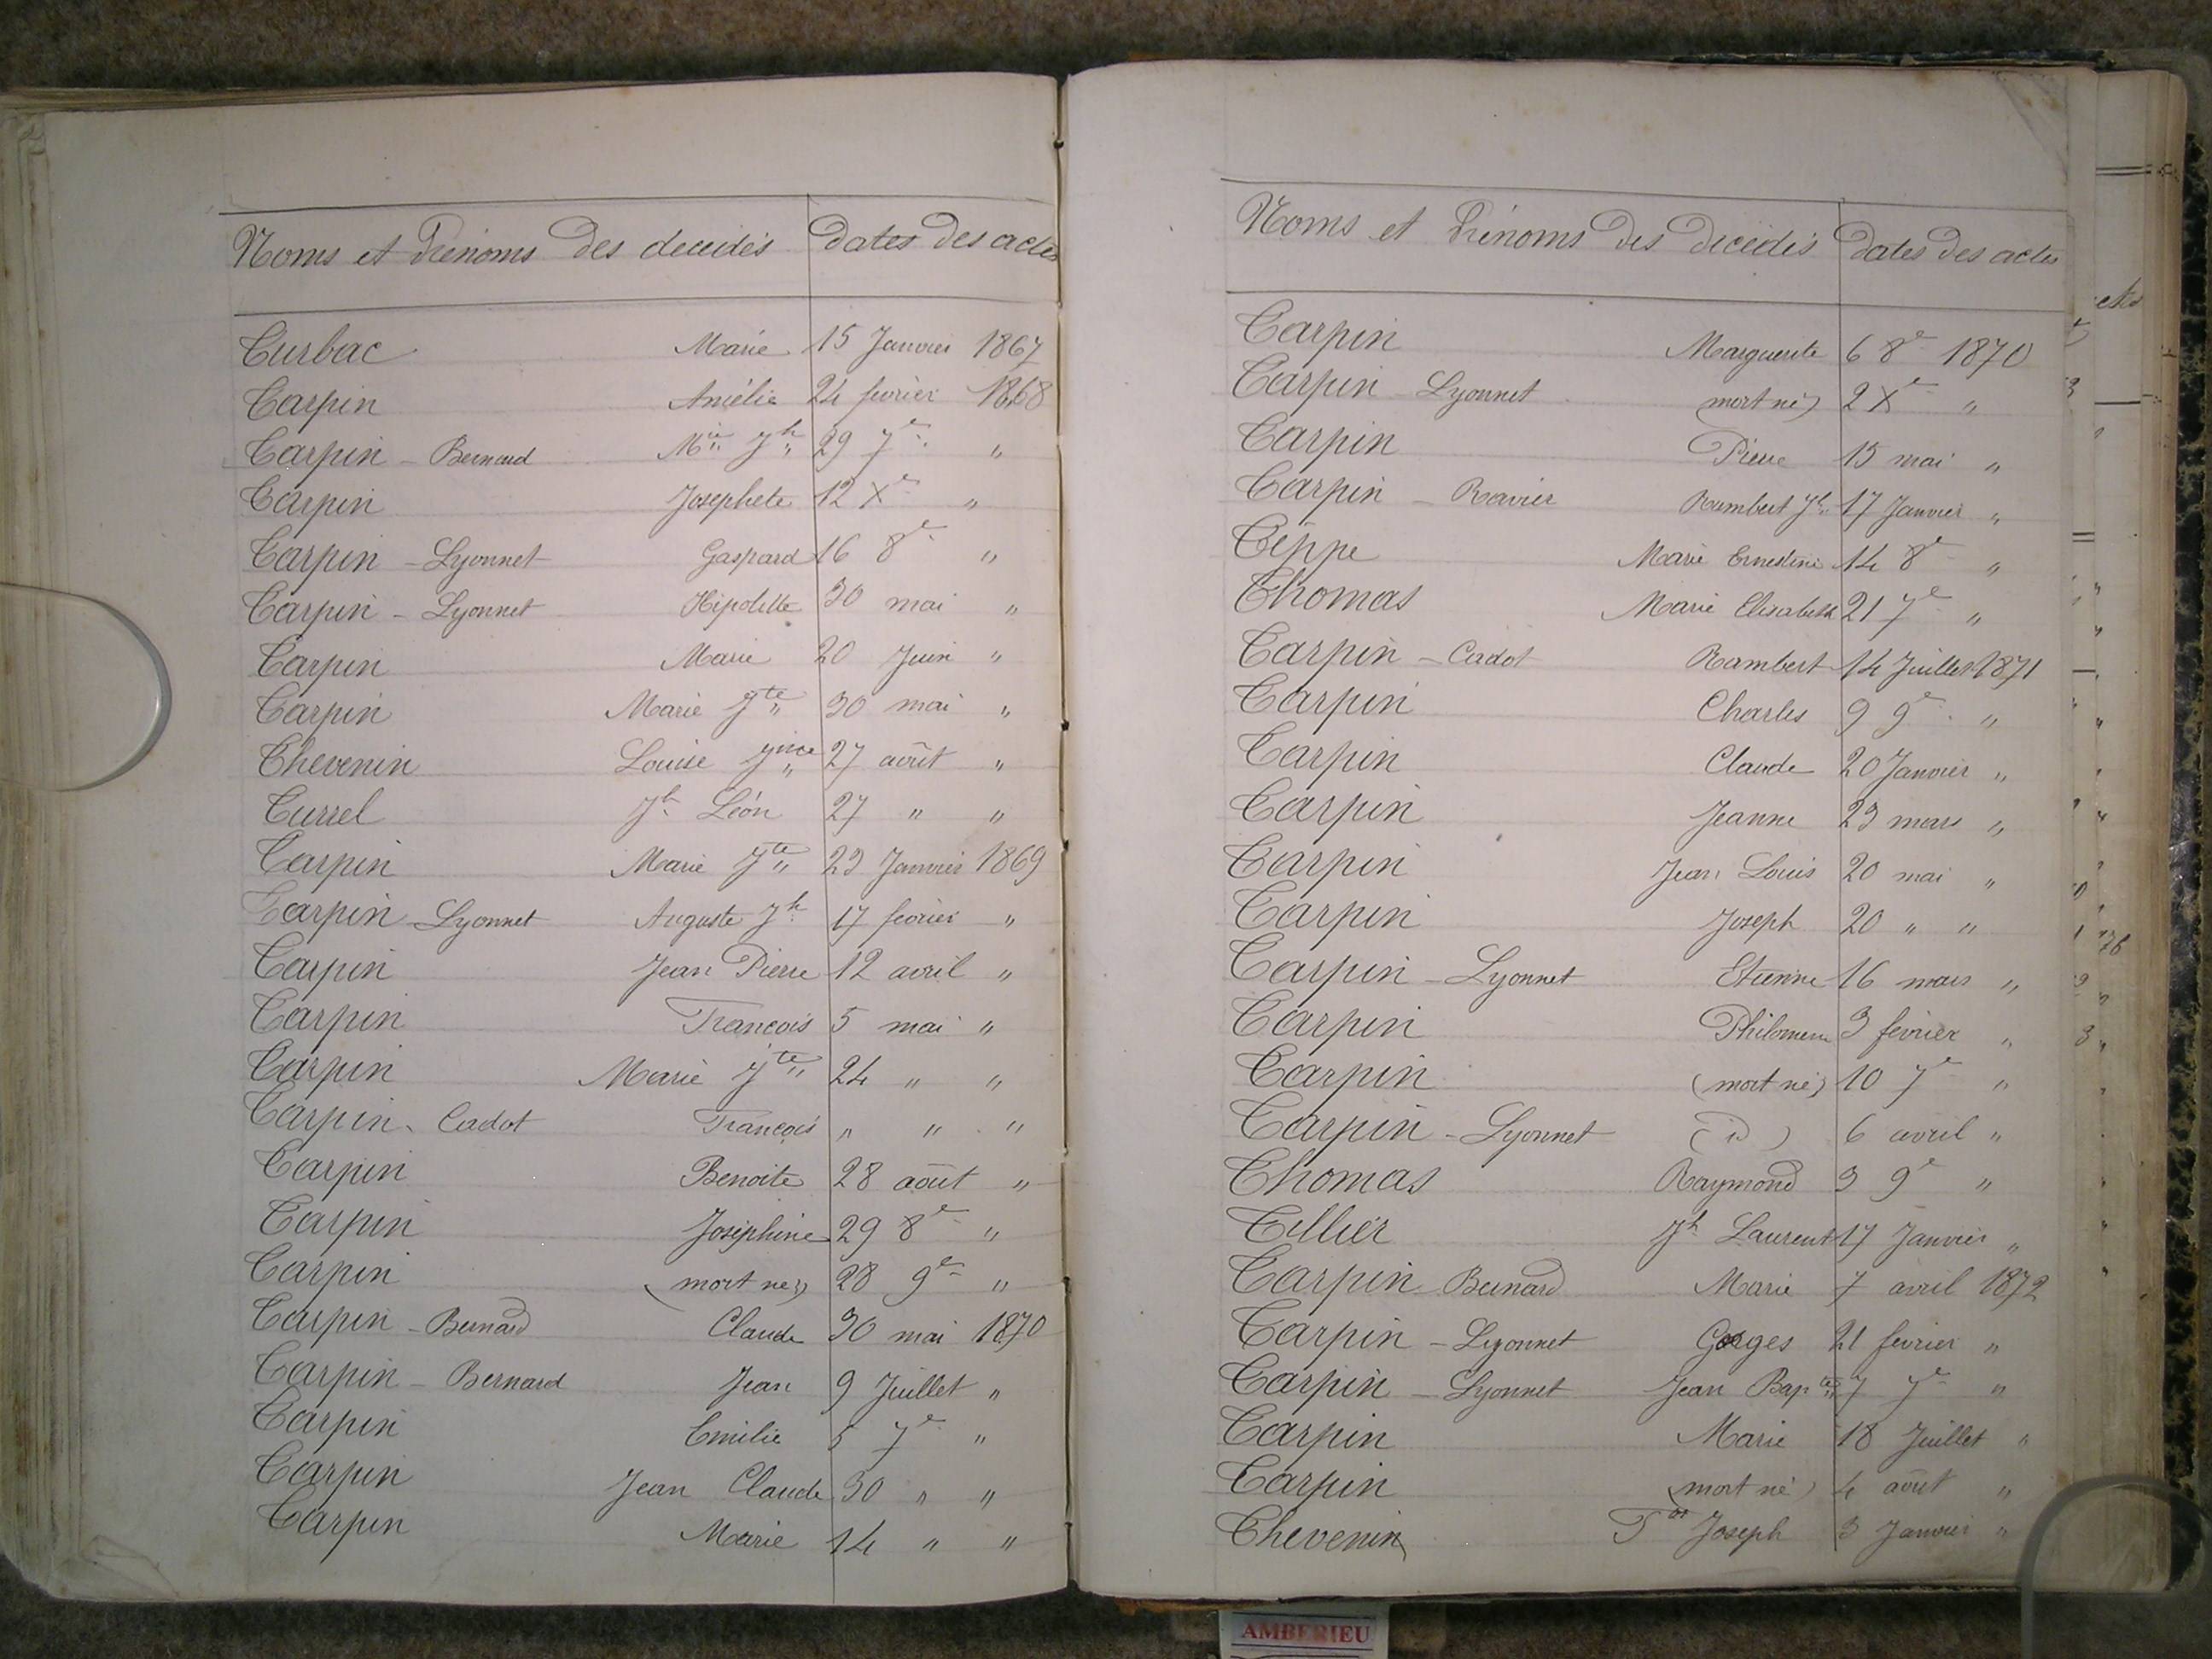 Noms et Prénoms des decedés dates des actes
Turbac Marie 15 Janvier 1867
Tarpin Amélie 24 fevrier 1868
Tarpin - Bernard Mie Jh 29 7e "
Tarpin Josephete 12 Xe "
Tarpin - Lyonnet Gaspard 16 8e "
Tarpin - Lyonnet Hipolitte 30 mai "
Tarpin Marie 20 Juin "
Tarpin Marie Jte 30 mai "
Thevenin Louise Jine 27 août "
Turrel Jh Léon 27 " "
Tarpin Marie Jte 23 Janvier 1869
Tarpin - Lyonnet Auguste Jh 17 fevrier "
Tarpin Jean Pierre 12 avril "
Tarpin François 5 mai "
Tarpin Marie Jte 24 " "
Tarpin - Cadot François " " "
Tarpin Benoite 28 août "
Tarpin Joséphine 29 8e "
Tarpin (mort né) 28 9e "
Tarpin - Bernard Claude 30 mai 1870
Tarpin - Bernard Jean 9 Juillet "
Tarpin Emilie 5 7e "
Tarpin Jean Claude 30 " "
Tarpin Marie 14 " "
Noms et Prénoms des decédés dates des actes
Tarpin Marguerite 6 8e 1870
Tarpin Lyonnet (mort né) 2 Xe "
Tarpin Pierre 15 mai "
Tarpin - Ravier Rambert Jh 17 Janvier "
Teppe Marie Ernestine 14 8e "
Thomas Marie Elisabeth 21 7e "
Tarpin - Cadot Rambert 14 Juillet 1871
Tarpin Charles 9 9e "
Tarpin Claude 20 Janvier "
Tarpin Jeanne 23 mars "
Tarpin Jean Louis 20 mai "
Tarpin Joseph 20 " "
Tarpin - Lyonnet Etienne 16 mars "
Tarpin Philomene 3 février "
Tarpin (mort né) 10 7e "
Tarpin - Lyonnet (id) 6 avril "
Thomas Raymond 3 9e "
Tellier Jh Laurent 17 Janvier "
Tarpin Bernard Marie 7 avril 1872
Tarpin - Lyonnet Georges 21 fevrier "
Tarpin - Lyonnet Jean Bapte 7 7e "
Tarpin Marie 18 Juillet "
Tarpin (mort né) 4 août "
Thevenin Joseph 3 Janvier "
AMBERIEU